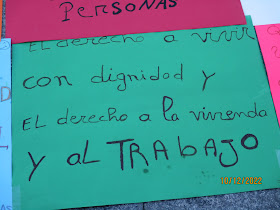 PERSONAS
EL derecho a vivir
con dignidad y
EL derecho a la vivienda
y al TRABAJO